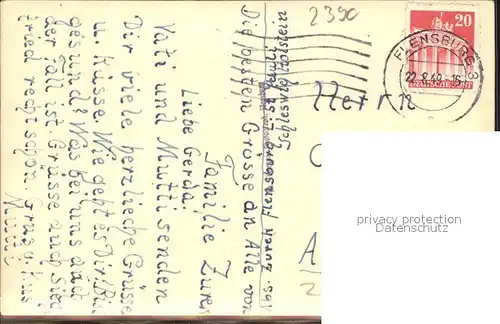 2390
20
FLENSBURG 3
22.8.49.-16
DEUTSCHE POST
Herrn
privacy protection
Datenschutz
A
2
Schleswig Holstein
Flensburg
Die besten Grüsse an Alle von
Familie
Liebe Gerda!
Vati und Mutti senden
Dir viele herzliche Grüsse
u. Küsse. Wie geht es Dir? Bist Du
gesund? Was bei uns auch
der Fall ist. Grüsse auch
fried recht schön. Gruss u. Kuss